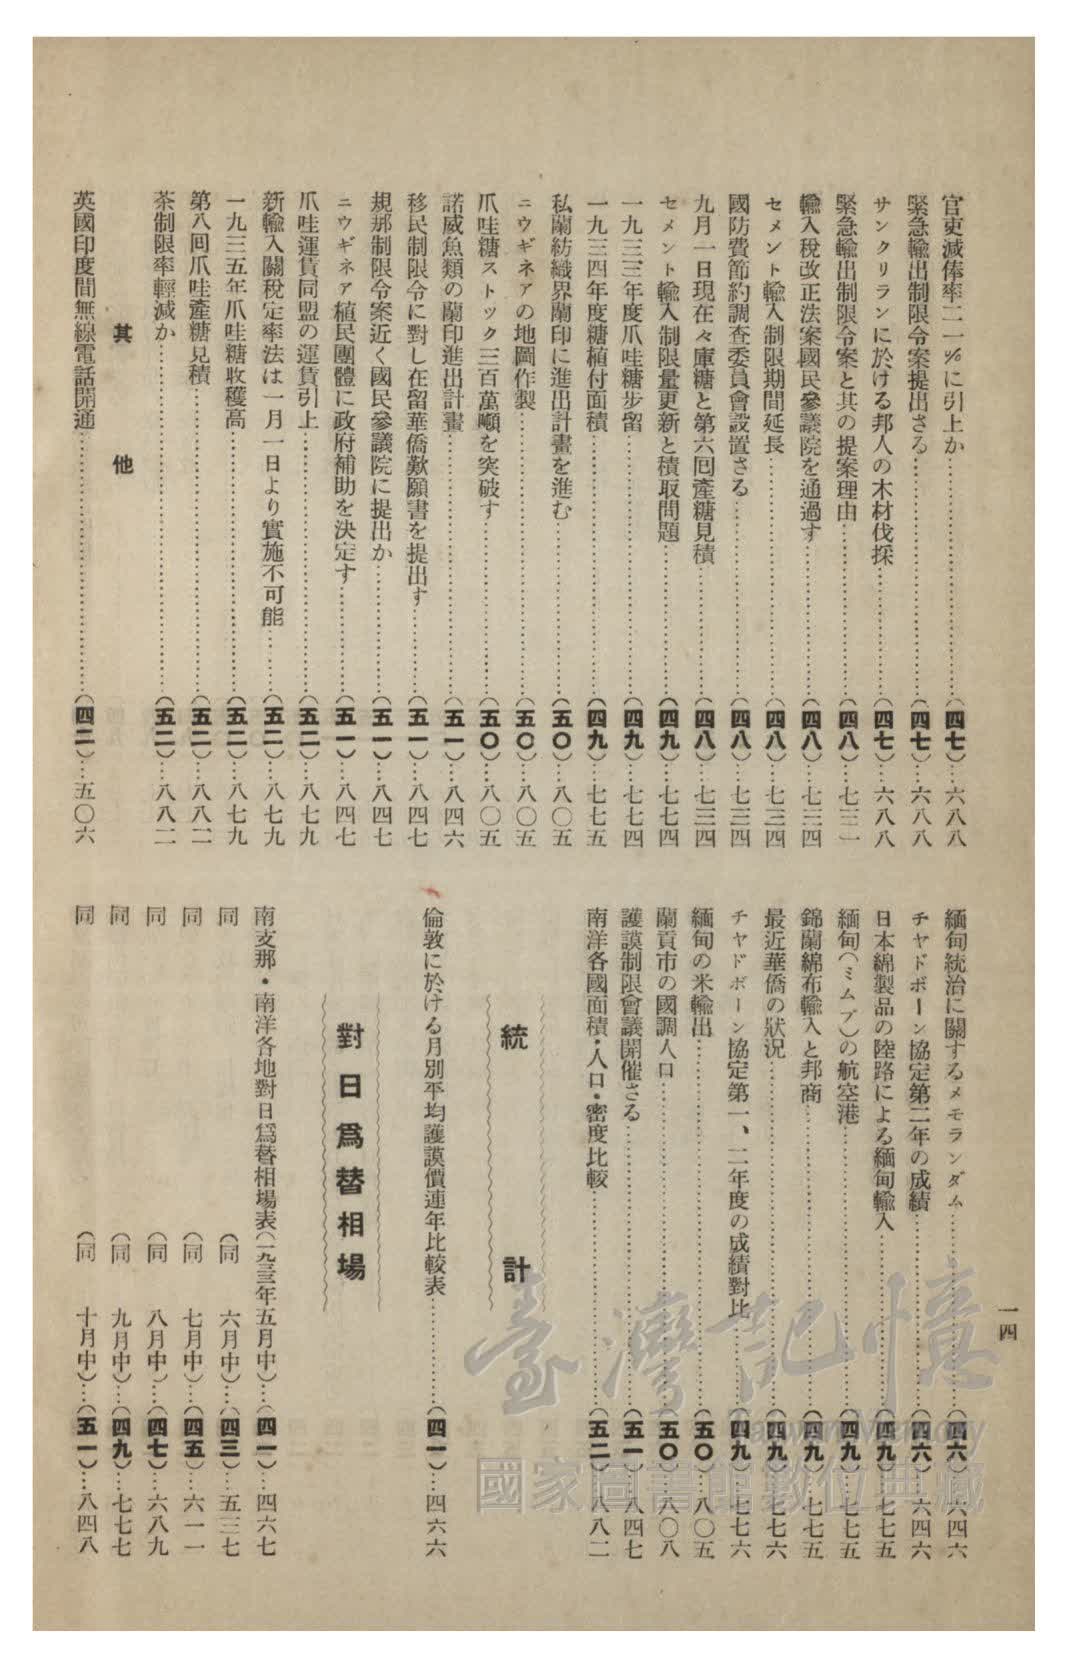 官吏減俸率二一%に引上か……(四七)…六八八
緊急輸出制限令案提出さる……(四七)…六八八
サンクリランに於ける邦人の木材伐採……(四七)…六八八
緊急輸出制限令案と其の提案理由……(四八)…七三一
輸入税改正法案國民參議院を通過す……(四八)…七三四
セメント輸入制限期間延長……(四八)…七三四
國防費節約調査委員會設置さる……(四八)…七三四
九月一日現在々庫糖と第六回產糖見積……(四八)…七三四
セメント輸入制限量更新と積取問題……(四九)…七七四
一九三三年度爪哇糖步留……(四九)…七七四
一九三四年度糖植付面積……(四九)…七七五
私蘭紡織界蘭印に進出計畫を進む……(五〇)…八〇五
ニウギネアの地圖作製……(五〇)…八〇五
爪哇糖ストック三百萬噸を突破す……(五〇)…八〇五
諾威魚類の蘭印進出計畫……(五一)…八四六
移民制限令に對し在留華僑歎願書を提出す……(五一)…八四七
規那制限令案近く國民參議院に提出か……(五一)…八四七
ニウギネア植民團體に政府補助を決定す……(五一)…八四七
爪哇運賃同盟の運賃引上……(五二)…八七九
新輸入關稅定率法は一月一日より實施不可能……(五二)…八七九
一九三五年爪哇糖收穫高……(五二)…八七九
第八回爪哇產糖見積……(五二)…八八二
茶制限率輕減か……(五二)…八八二
其他
英國印度間無線電話開通……(四二)…五〇六
緬甸統治に關するメモランダム……(四六)…六四六
チヤドボーン協定第二年の成績……(四六)…六四六
日本綿製品の陸路による緬甸輸入……(四九)…七七五
緬甸(ミムブ)の航空港……(四九)…七七五
錦蘭綿布輸入と邦商……(四九)…七七五
最近華僑の狀況……(四九)…七七六
チヤドボーン協定第一、二年度の成績對比……(四九)…七七六
緬甸の米輸出……(五〇)…八〇五
蘭貢市の國調人口……(五〇)…八〇八
護謨制限會議開催さる……(五一)…八四七
南洋各國面積・人口・密度比較……(五二)…八八二
統計
倫敦に於ける月別平均護謨價連年比較表……(四一)…四六六
對日爲替相場
南支那・南洋各地對日爲替相場表(一九三三年五月中)…(四一)…四六七
同 (同 六月中)…(四三)…五三七
同 (同 七月中)…(四五)…六一一
同 (同 八月中)…(四七)…六八九
同 (同 九月中)…(四九)…七七七
同 (同 十月中)…(五一)…八四八
一四
臺灣記憶
Taiwan Memory
國家圖書館數位典藏